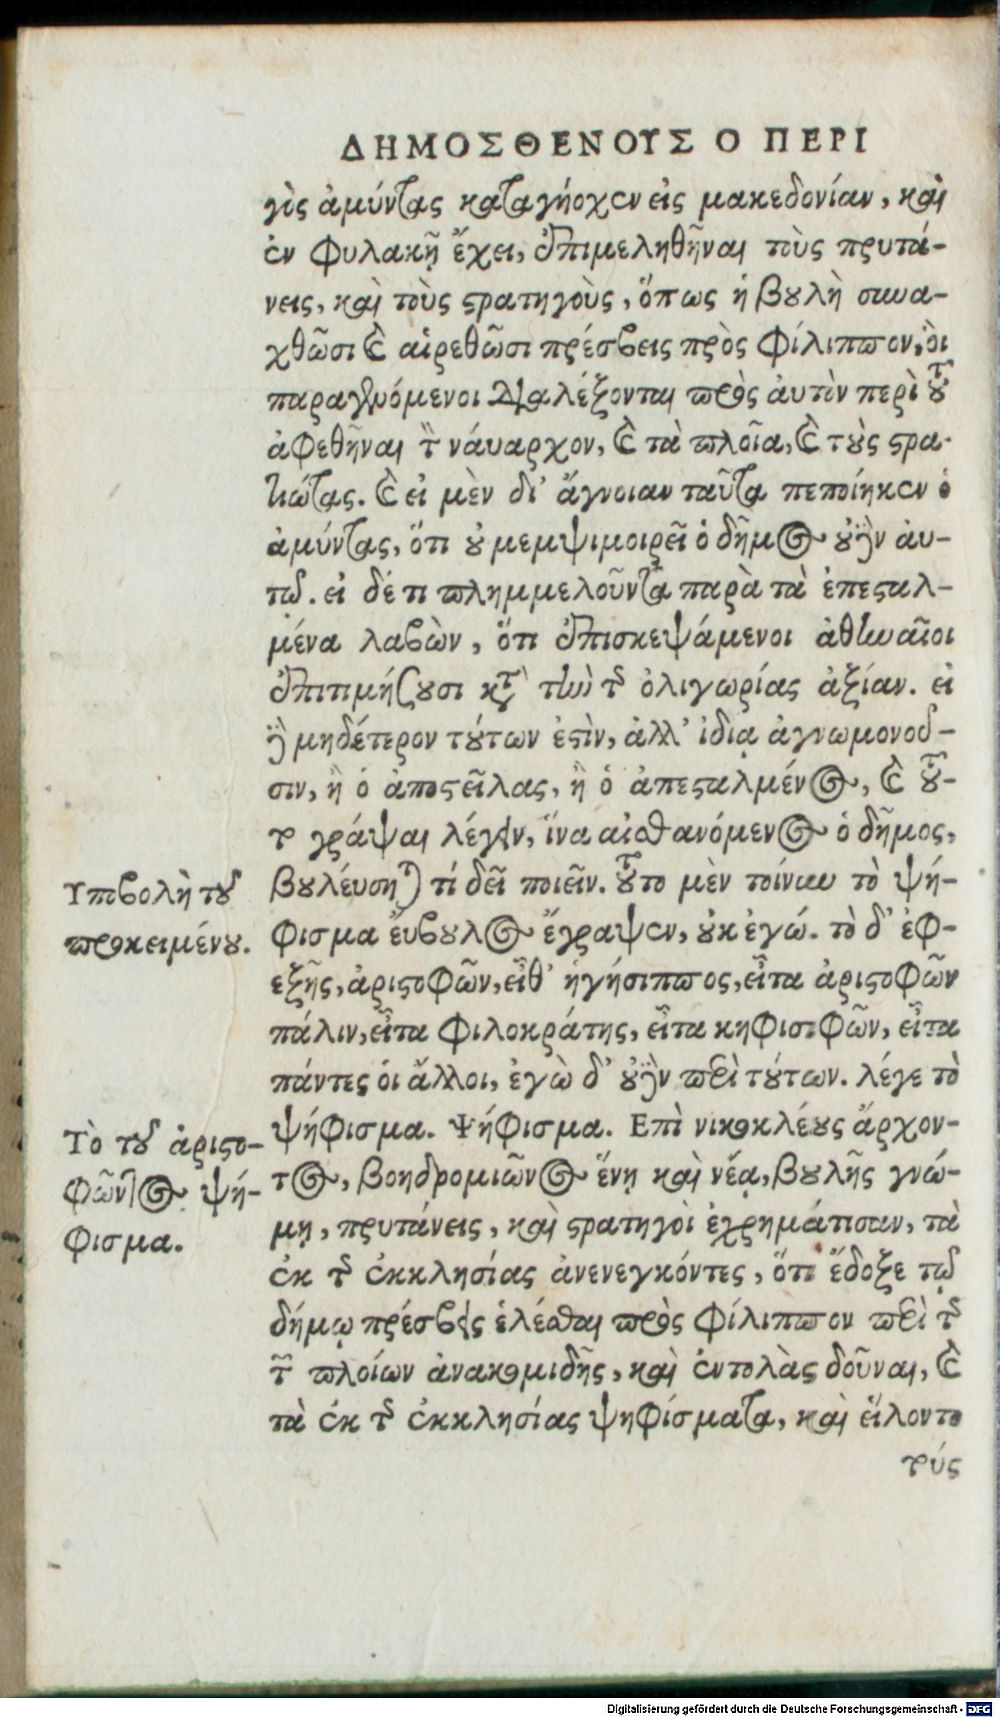 ΔΗΜΟΣΘΕΝΟΥΣ Ο ΠΕΡΙ
γὸς ἀμύντας καταγήοχεν εἰς μακεδονίαν, καὶ
ἐν φυλακῇ ἔχει, ἐπιμεληθῆναι τοὺς πρυτά-
νεις, καὶ τοὺς στρατηγοὺς, ὅπως ἡ βουλὴ συνα-
χθῶσι καὶ αἱρεθῶσι πρέσβεις πρὸς Φίλιππον, ὁὶ
παραγενόμενοι διαλέξονται πρὸς ἀυτὸν περὶ τοῦ
ἀφεθῆναι τὸν νάυαρχον, καὶ τὰ πλοῖα, καὶ τοὺς στρα-
τιώτας. καὶ εἰ μὲν δι' ἄγνοιαν ταῦτα πεποίηκεν ὁ
ἀμύντας, ὅτι οὐ μεμψιμοιρεῖ ὁ δῆμος οὐδὲν ἀυ-
τῷ. εἰ δέ τι πλημμελοῦντα παρὰ τὰ ἐπεσταλ-
μένα λαβὼν, ὅτι ἐπισκεψάμενοι ἀθηναῖοι
ἐπιτιμήσουσι κατὰ τὴν τῆς ὀλιγωρίας ἀξίαν. εἰ
δὲ μηδέτερον τούτων ἐστὶν, ἀλλ' ἰδίᾳ ἀγνωμονοῦ-
σιν, ἢ ὁ ἀποστεῖλας, ἢ ὁ ἀπεσταλμένος, καὶ τοῦ-
το γράψαι λέγειν, ἵνα αἰσθανόμενος ὁ δῆμος,
βουλέυσηται τί δεῖ ποιεῖν. τοῦτο μὲν τοίνυν τὸ ψή-
φισμα ἔυβουλος ἔγραψεν, οὐκ ἐγώ. τὸ δ' ἐφ-
εξῆς, ἀριστοφῶν, εἶθ' ἡγήσιππος, εἶτα ἀριστοφῶν
πάλιν, εἶτα Φιλοκράτης, εἶτα κηφισιφῶν, εἶτα
πάντες ὁι ἄλλοι, ἐγὼ δ' οὐδὲν περὶ τούτων. λέγε τὸ
ψήφισμα. Ψήφισμα. Επὶ νικοκλέους ἄρχον-
τος, βοηδρομιῶνος ἕνῃ καὶ νέᾳ, βουλῆς γνώ-
μῃ, πρυτάνεις, καὶ στρατηγὸι ἐχρημάτισαν, τὰ
ἐκ τῆς ἐκκλησίας ἀνενεγκόντες, ὅτι ἔδοξε τῷ
δήμῳ πρέσβεις ἑλέσθαι πρὸς Φίλιππον περὶ τῆς
τῶν πλοίων ἀνακομιδῆς, καὶ ἐντολὰς δοῦναι, καὶ
τὰ ἐκ τῆς ἐκκλησίας ψηφίσματα, καὶ ἕιλοντο
τούς
Υποβολὴ τοῦ
προκειμένου.
Τὸ τοῦ ἀριστο-
φῶντος ψή-
φισμα.
Digitalisierung gefördert durch die Deutsche Forschungsgemeinschaft - DFG